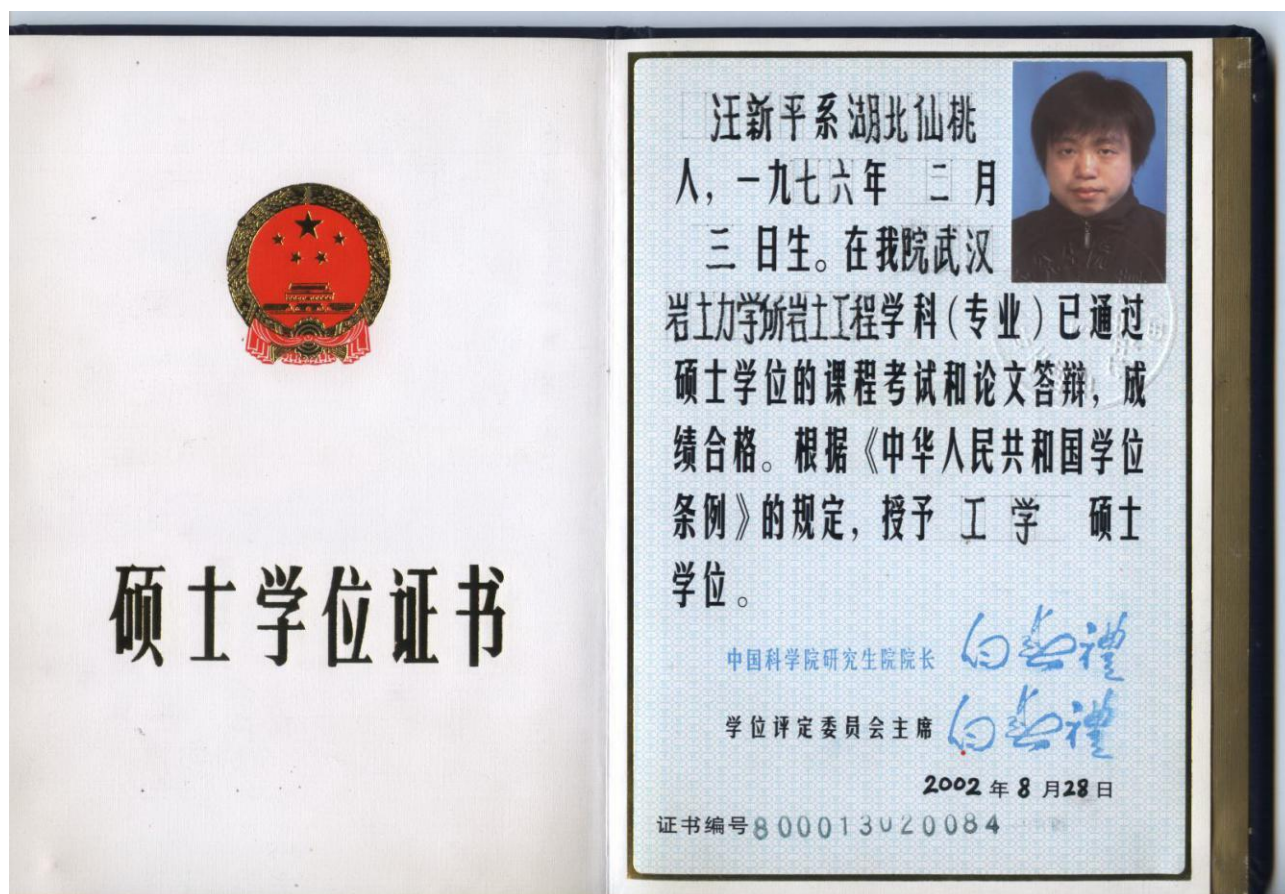 硕士学位证书
汪新平系湖北仙桃
人，一九七六年 二 月
三 日生。在我院武汉
岩土力学所岩土工程学科（专业）已通过
硕士学位的课程考试和论文答辩，成
绩合格。根据《中华人民共和国学位
条例》的规定，授予 工 学 硕士
学位。
中国科学院研究生院院长 白春禮
学位评定委员会主席 白春禮
2002 年 8 月 28 日
证书编号800013020084